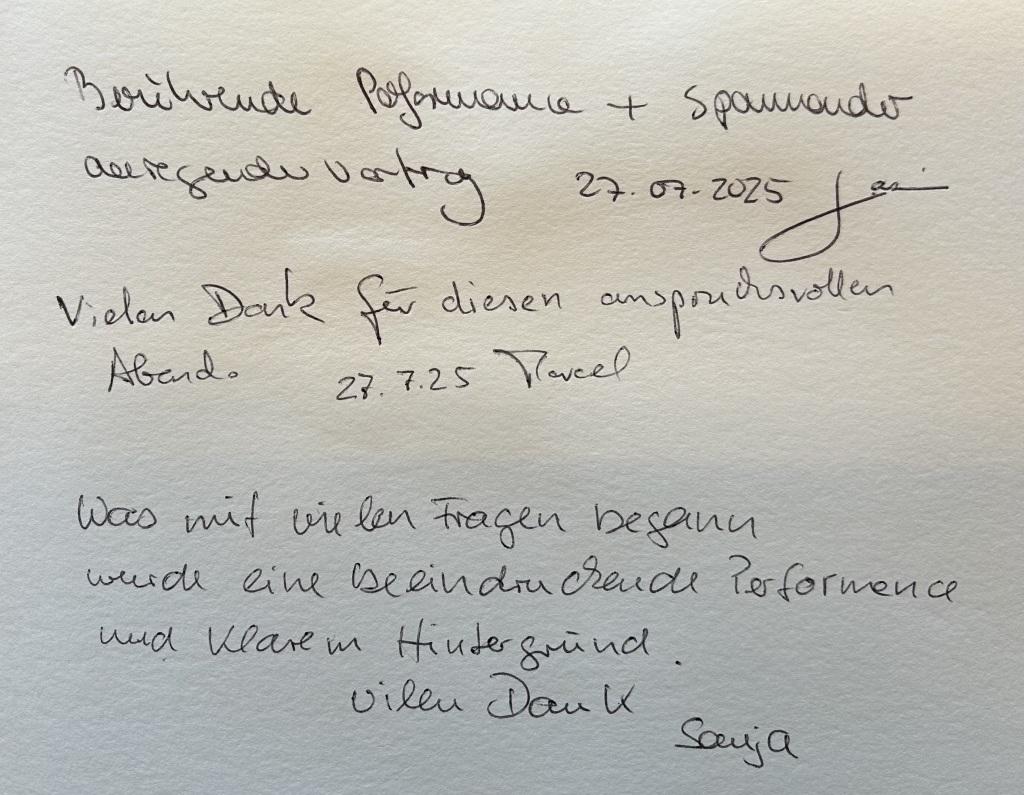 Berührende Performance + Spannender
anregender Vortrag 27.07.2025
Vielen Dank für diesen anspruchsvollen
Abend. 27.7.25 Marcel
Was mit vielen Fragen begann
wurde eine beeindruckende Performence
und Klarem Hintergrund.
vilen Dank
Sonja